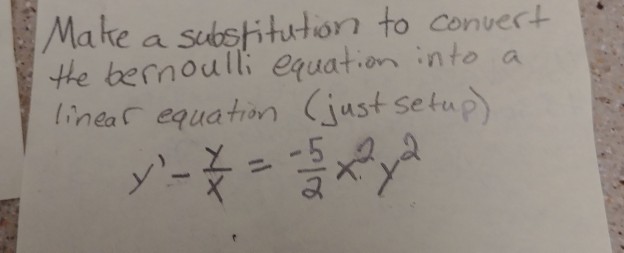 Make a substitution to convert
the bernoulli equation into a
linear equation (just setup)
y' - y/x = -5/2 x²y²